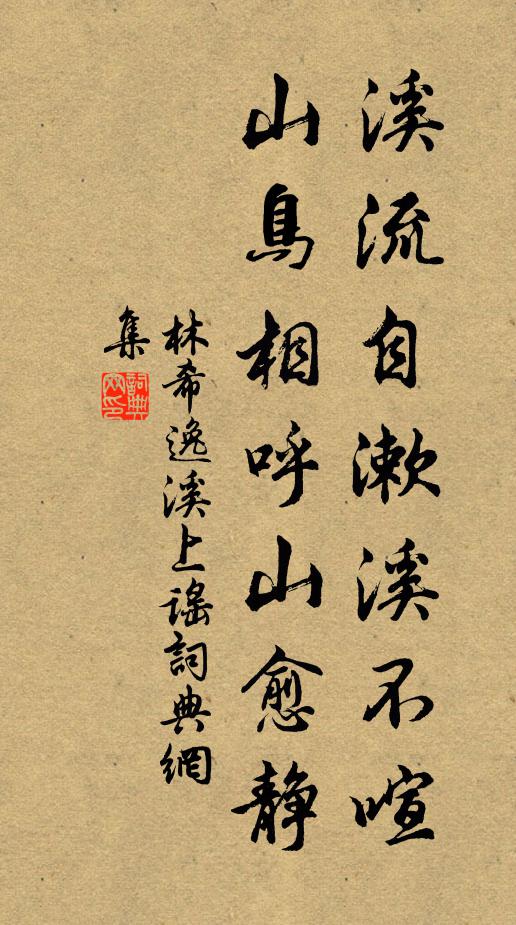 溪流自漱溪不喧
山鳥相呼山愈静
林希逸溪上謠詞典網
集
詞典网印